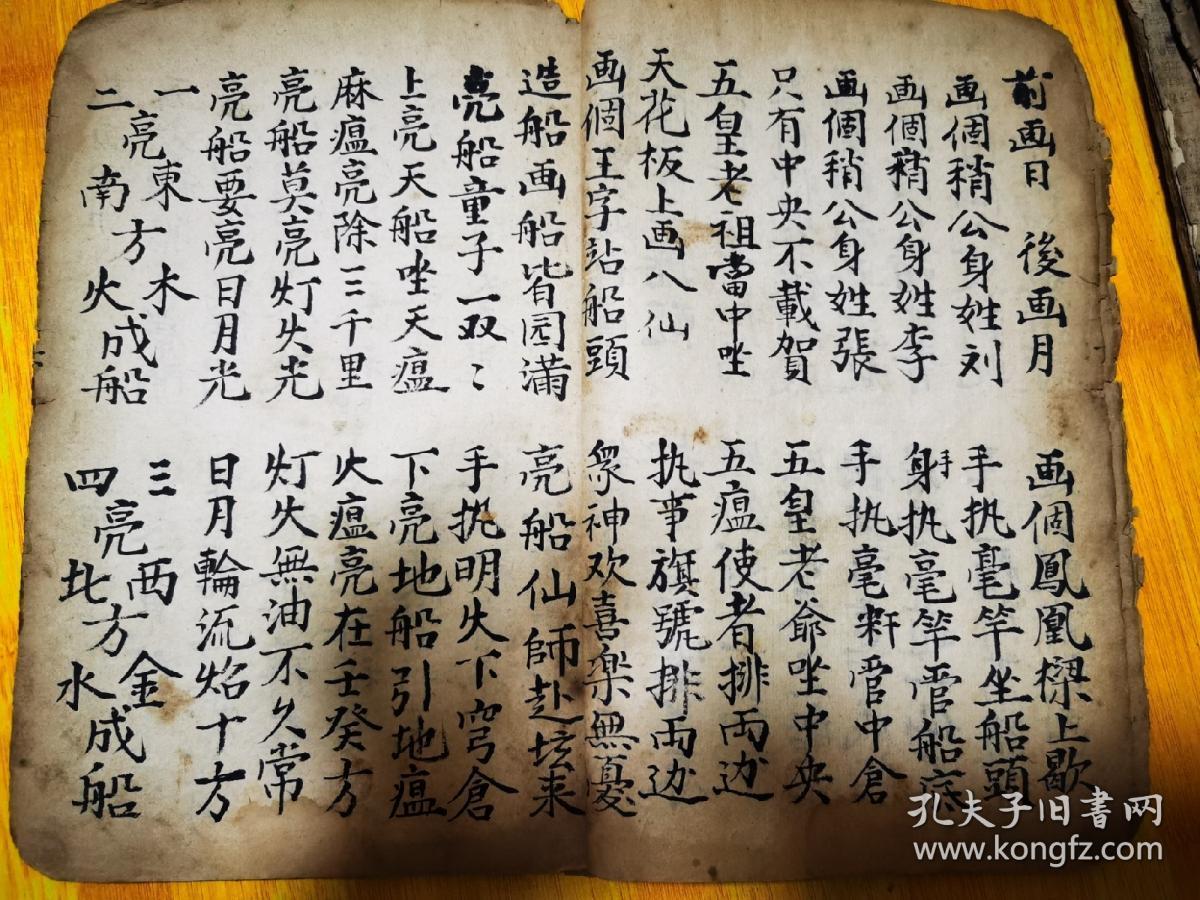 前画日 後画月 画個鳳凰樑上歇
画個稍公身姓刘 手执毫竿坐船頭
画個稍公身姓李 身手执毫竿管船底
画個稍公身姓張 手执毫粁管中倉
只有中央不載賀 五皇老爺坐中央
五皇老祖當中坐 五瘟使者排両边
天花板上画八仙 执事旗號排両边
画個王字站船頭 衆神欢喜楽無憂
造船画船皆园满 亮船仙師赴坛来
亮船童子一双〻 手执明火下穹倉
上亮天船坐天瘟 下亮地船引地瘟
麻瘟亮除三千里 火瘟亮在壬癸方
亮船莫亮灯火光 灯火無油不久常
亮船要亮日月光 日月輪流焰十方
一亮東方木成船 三亮西方金成船
二亮南方火成船 四亮北方水成船
孔夫子旧書网
www.kongfz.com